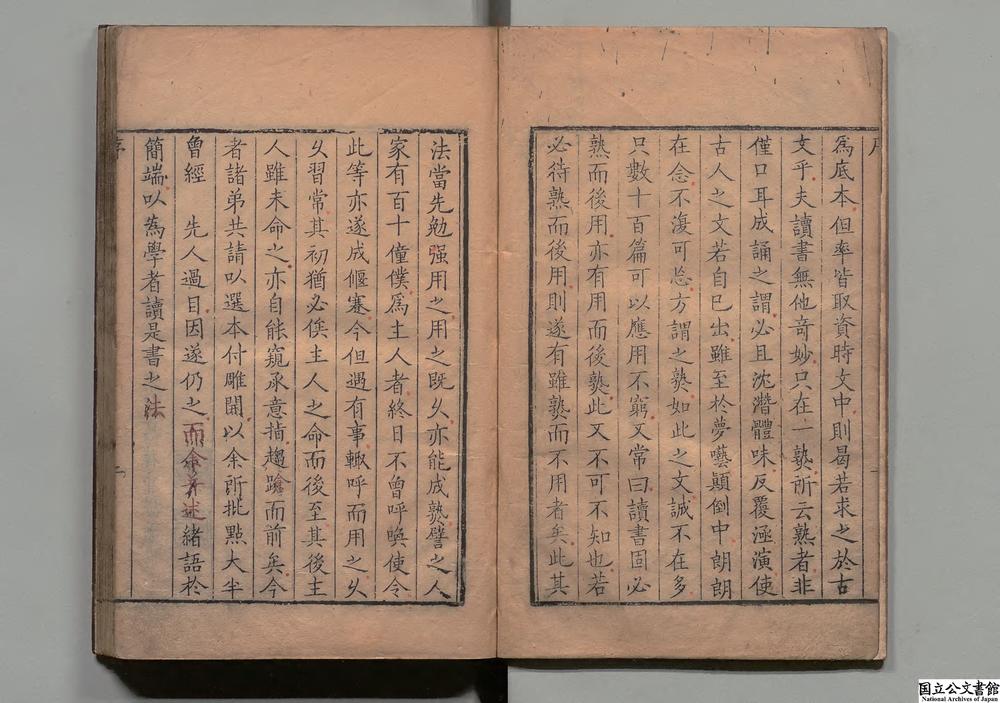 序
爲底本但率皆取資時文中則曷若求之於古
文乎夫讀書無他奇妙只在一熟所云熟者非
僅口耳成誦之謂必且沈潛體味反覆涵演使
古人之文若自己出雖至於夢囈顛倒中朗朗
在念不復可忘方謂之熟如此之文誠不在多
只數十百篇可以應用不窮又常曰讀書固必
熟而後用亦有用而後熟此又不可不知也若
必待熟而後用則遂有雖熟而不用者矣此其
法當先勉强用之用之既久亦能成熟譬之人
家有百十僮僕爲主人者終日不曾呼喚使令
此等亦遂成偃蹇今但遇有事輙呼而用之久
久習常其初猶必俟主人之命而後至其後主
人雖未命之亦自能窺承意㨖趨蹌而前矣今
者諸弟共請以選本付雕開以余所批點大半
曾經　先人過目因遂仍之而命弁述緒語於
簡端以為學者讀是書之法
序
二
国立公文書館
National Archives of Japan